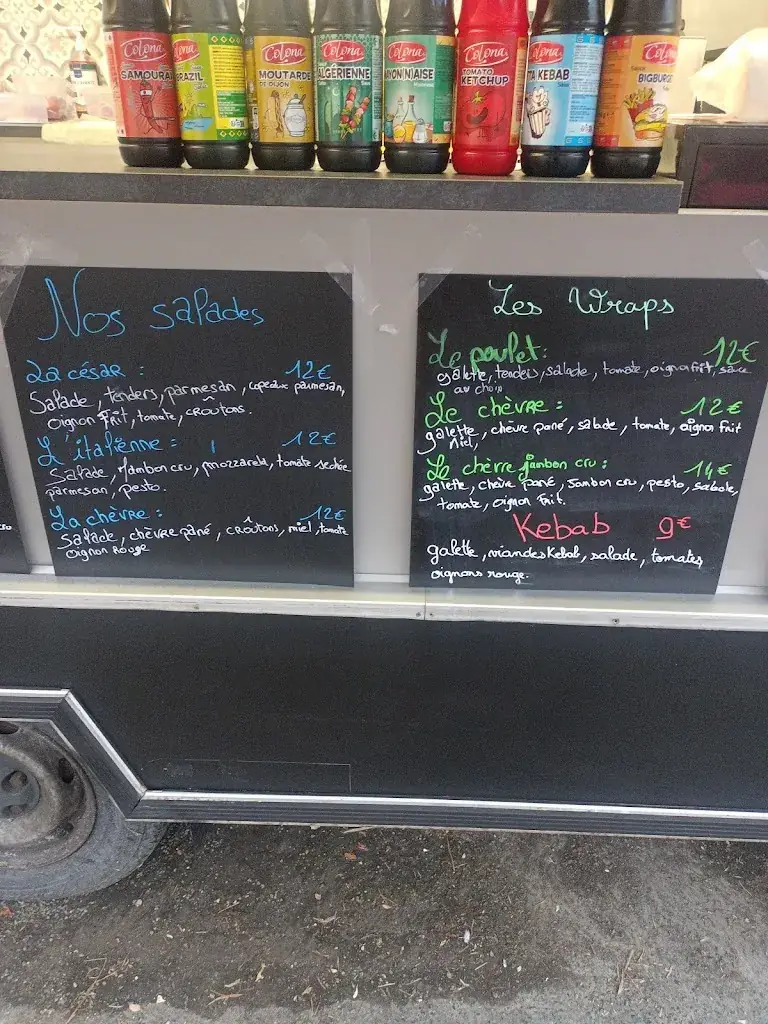 Colona
SAMOURAÏ
Colona
BRAZIL
Colona
MOUTARDE
DE DIJON
Colona
ALGÉRIENNE
Colona
MAYONNAISE
Colona
TOMATO
KETCHUP
Colona
KEBAB
Colona
BIGBURGER
Nos salades
La césar : 12€
Salade, tenders, parmesan, copeaux parmesan,
Oignon Frit, tomate, croûtons.
L'italienne : 12€
Salade, Jambon cru, mozzarela, tomate sechée
parmesan, pesto.
La chèvre : 12€
Salade, chèvre pané, croûtons, miel, tomate
Oignon Rouge
Les Wraps
Le poulet : 12€
galette, tenders, salade, tomate, oignon frit, sauce
au choix
Le chèvre : 12€
galette, chèvre pané, salade, tomate, oignon frit
miel,
Le chèvre jambon cru : 14€
galette, chèvre pané, Jambon cru, pesto, salade,
tomate, oignon frit.
Kebab 9€
galette, viandes Kebab, salade, tomates,
oignons rouge.